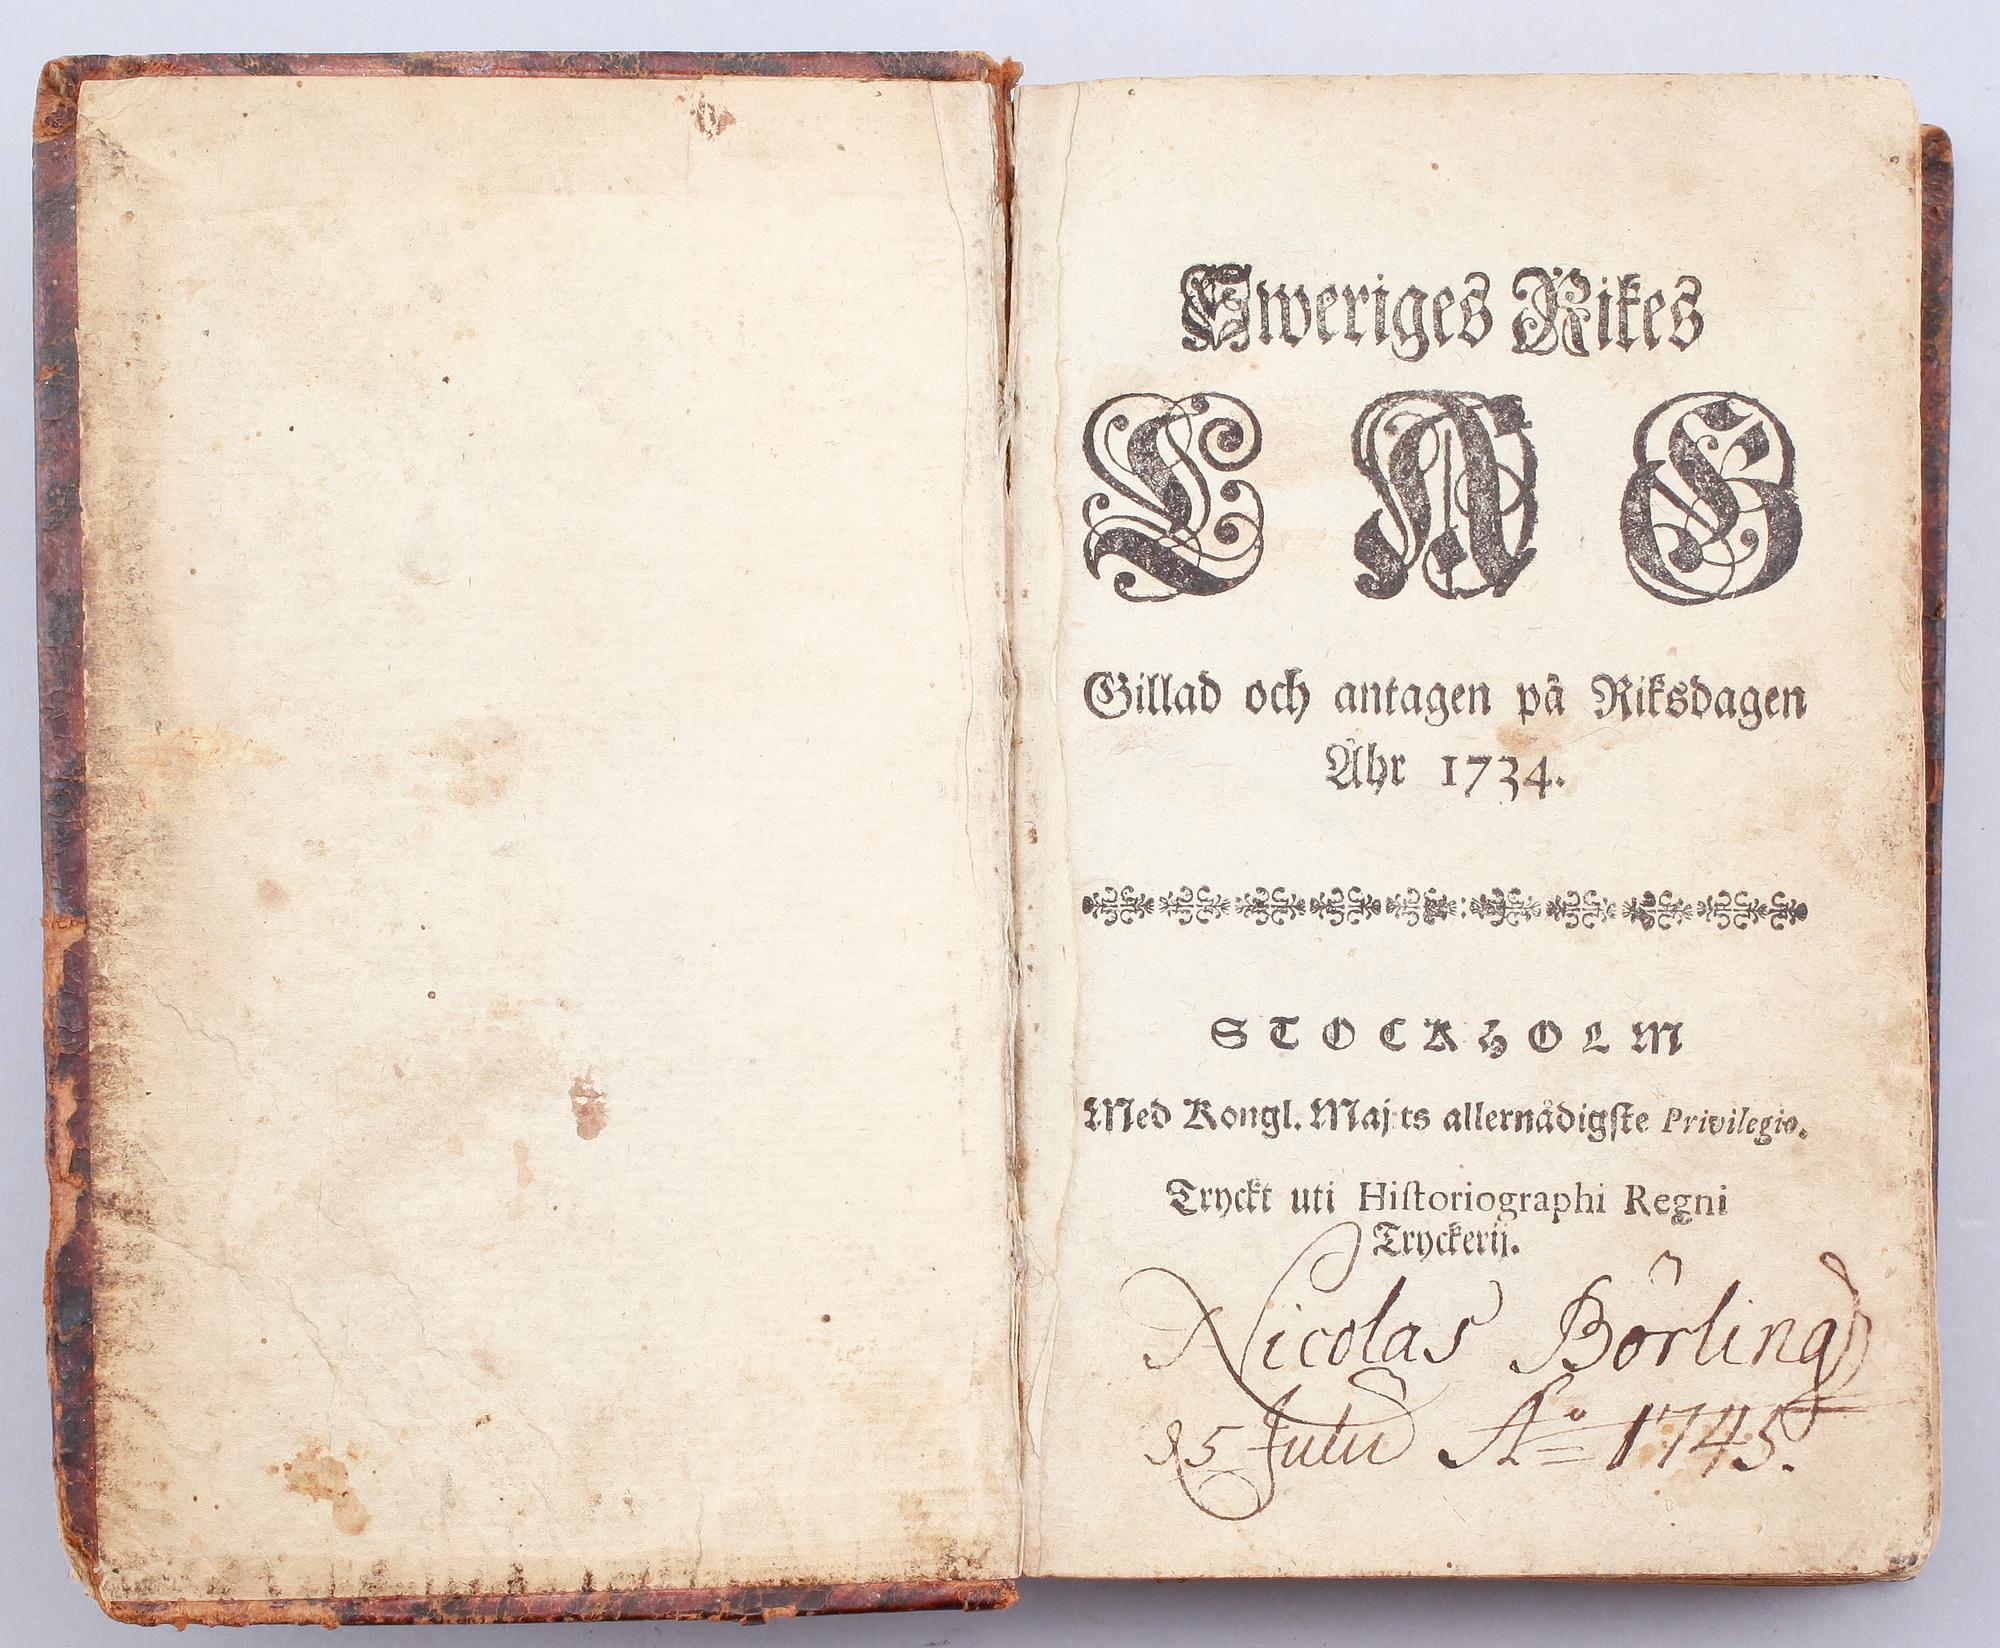 Sweriges Rikes
LAG
Gillad och antagen på Riksdagen
Åhr 1734.
STOCKHOLM
Med Kongl. Maj:ts allernådigste Privilegio.
Tryckt uti Historiographi Regni
Tryckerij.
Nicolas Börling
Julii A:o 1745.